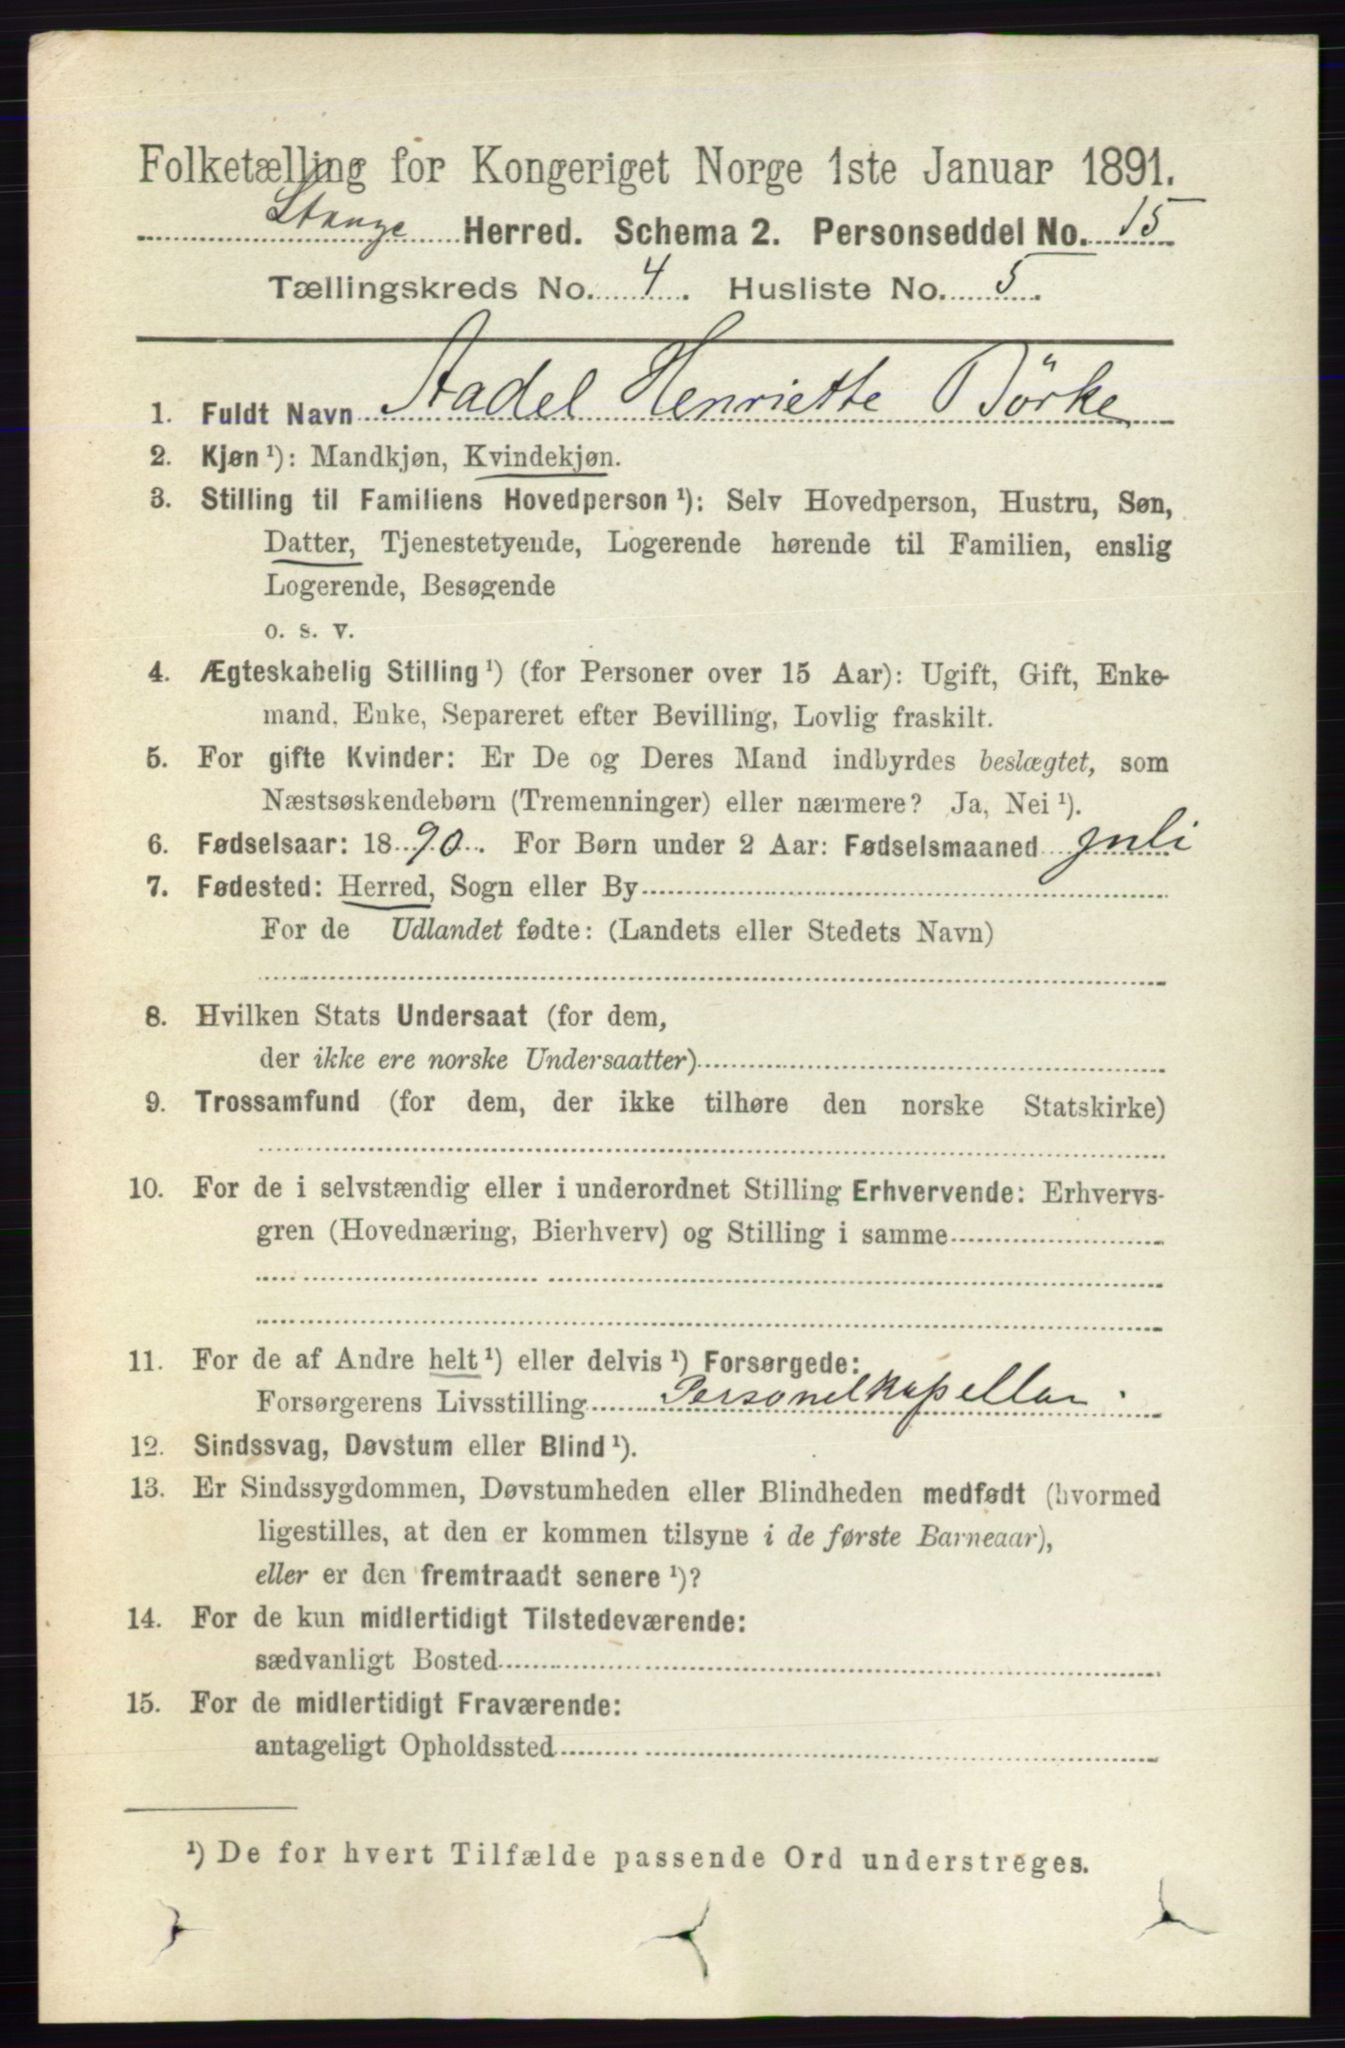 Folketælling for Kongeriget Norge 1ste Januar 1891.
Stange Herred. Schema 2. Personseddel No. 15
Tællingskreds No. 4. Husliste No. 5.
1. Fuldt Navn Aadel Henriette Börke
2. Kjøn ¹): Mandkjøn, Kvindekjøn.
3. Stilling til Familiens Hovedperson ¹): Selv Hovedperson, Hustru, Søn,
Datter, Tjenestetyende, Logerende hørende til Familien, enslig
Logerende, Besøgende
o. s. v.
4. Ægteskabelig Stilling ¹) (for Personer over 15 Aar): Ugift, Gift, Enke-
mand, Enke, Separeret efter Bevilling, Lovlig fraskilt.
5. For gifte Kvinder: Er De og Deres Mand indbyrdes beslægtet, som
Næstsøskendebørn (Tremenninger) eller nærmere? Ja, Nei ¹).
6. Fødselsaar: 1890. For Børn under 2 Aar: Fødselsmaaned juli
7. Fødested: Herred, Sogn eller By
For de Udlandet fødte: (Landets eller Stedets Navn)
8. Hvilken Stats Undersaat (for dem,
der ikke ere norske Undersaatter)
9. Trossamfund (for dem, der ikke tilhøre den norske Statskirke)
10. For de i selvstændig eller i underordnet Stilling Erhvervende: Erhvervs-
gren (Hovednæring, Bierhverv) og Stilling i samme
11. For de af Andre helt ¹) eller delvis ¹) Forsørgede:
Forsørgerens Livsstilling Personelkapellan.
12. Sindssvag, Døvstum eller Blind ¹).
13. Er Sindssygdommen, Døvstumheden eller Blindheden medfødt (hvormed
ligestilles, at den er kommen tilsyne i de første Barneaar),
eller er den fremtraadt senere ¹)?
14. For de kun midlertidigt Tilstedeværende:
sædvanligt Bosted
15. For de midlertidigt Fraværende:
antageligt Opholdssted
¹) De for hvert Tilfælde passende Ord understreges.